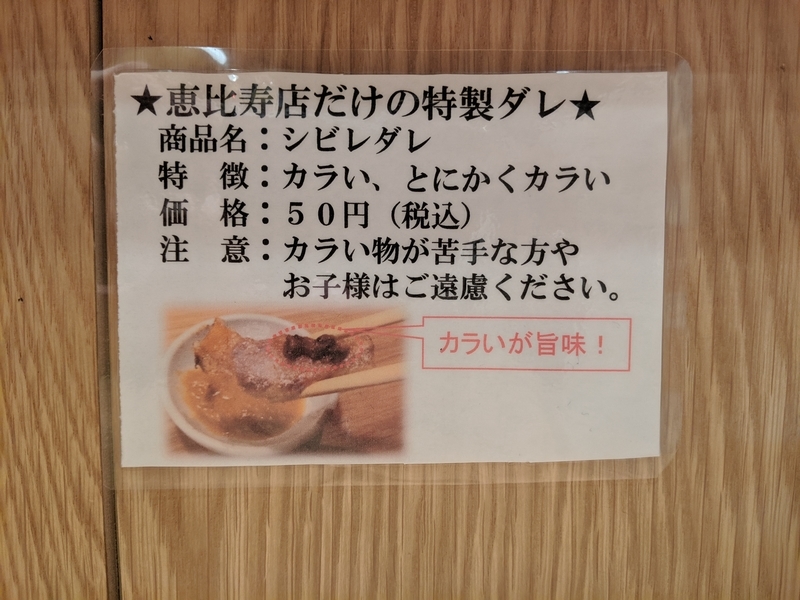 ★恵比寿店だけの特製ダレ★
商品名：シビレダレ
特　徴：カラい、とにかくカラい
価　格：５０円（税込）
注　意：カラい物が苦手な方や
お子様はご遠慮ください。
カラいが旨味！